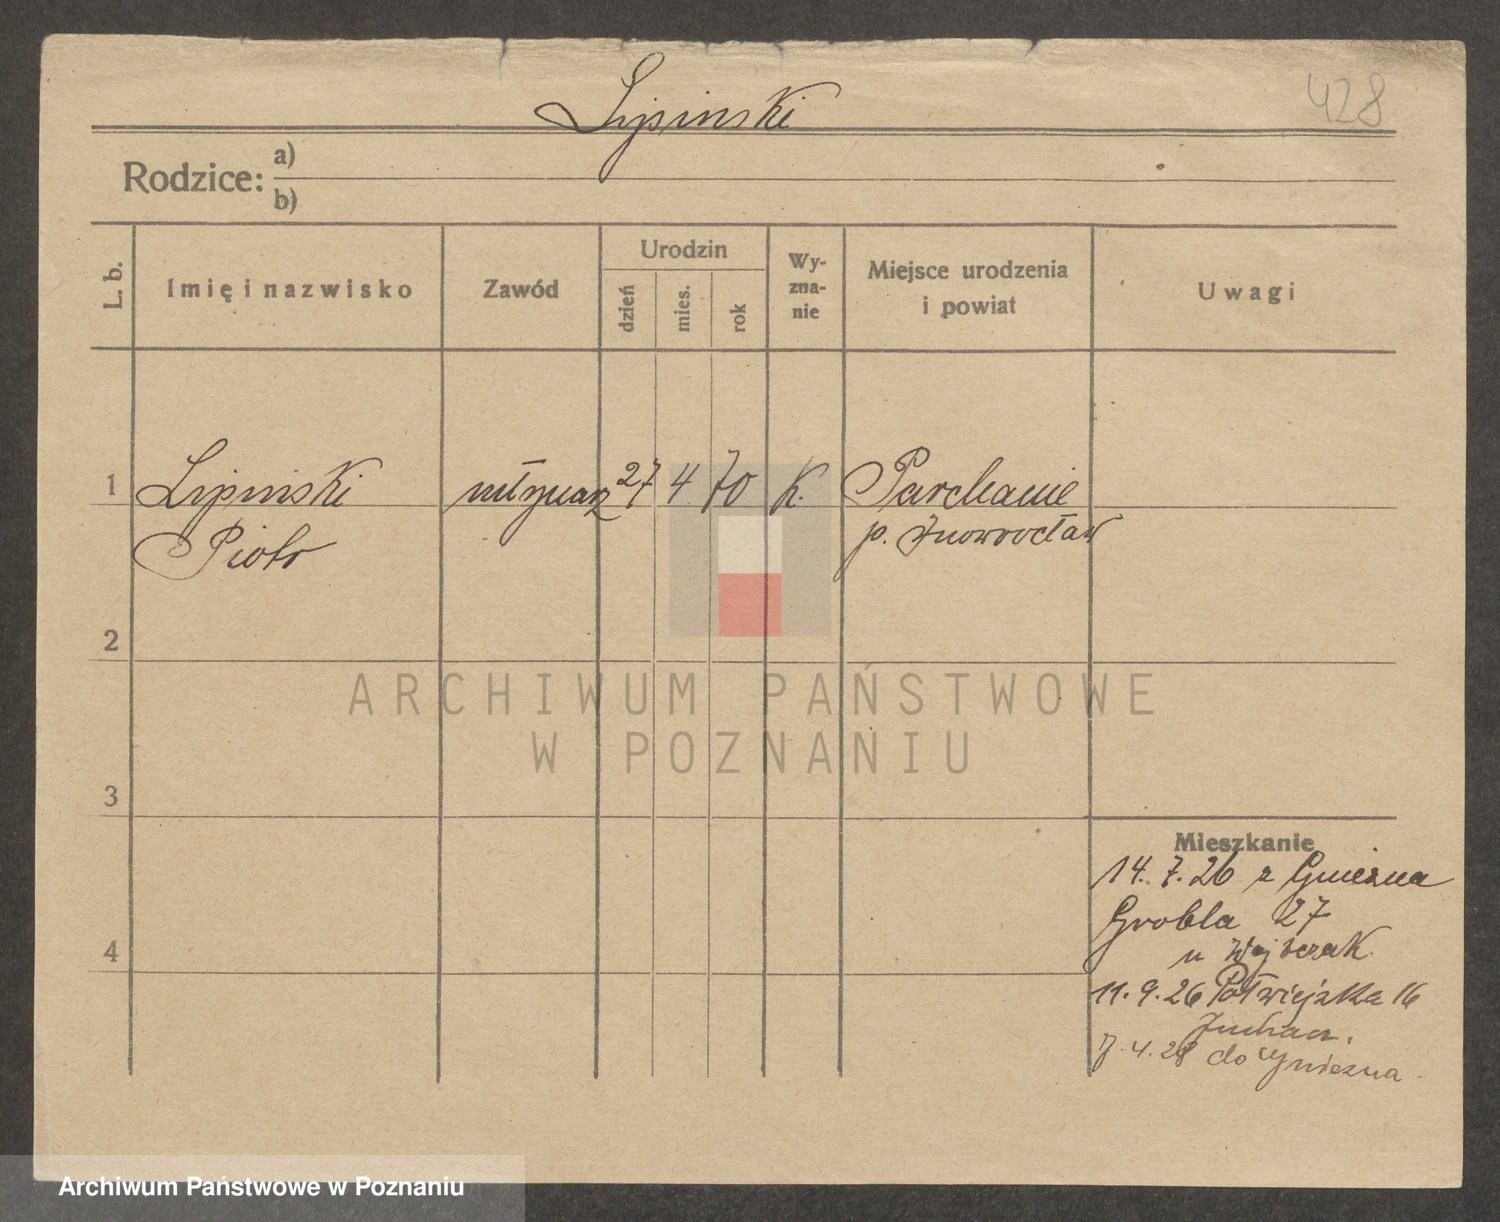 Lipinski
428
Rodzice: a)
b)
L. b.
Imię i nazwisko
Zawód
Urodzin
dzień
mies.
rok
Wy-
zna-
nie
Miejsce urodzenia
i powiat
Uwagi
1 Lipinski młynarz 27 4 70 K. Parchanie
Piotr p. Inowrocław
2
3
4
Mieszkanie
14.7.26 z Gniezna
Grobla 27
u
11.9.26 Półwiejska 16
7.4.28 do Gniezna
ARCHIWUM PAŃSTWOWE
W POZNANIU
Archiwum Państwowe w Poznaniu